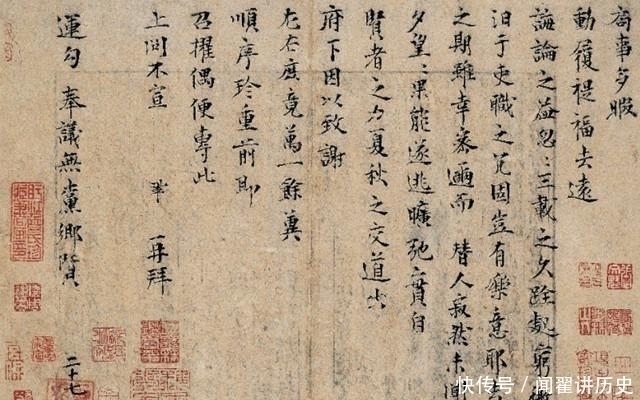 局事多暇
動履禔福去遠
誨論之益忽〻三載之久跧處窮徼
汩于吏職之冗固豈有樂意耶
之期雖幸密邇而 替人寂然未聞
夕望〻果能遂逃曠弛實自
賢者之力夏秋之交道出
府下因以致謝
左右庶竟萬一餘冀
順序珍重前即
召擢偶便專此
上問不宣 鞏 再拜
運勾奉議無黨鄉賢 二十七
快传号 / 闻翟讲历史